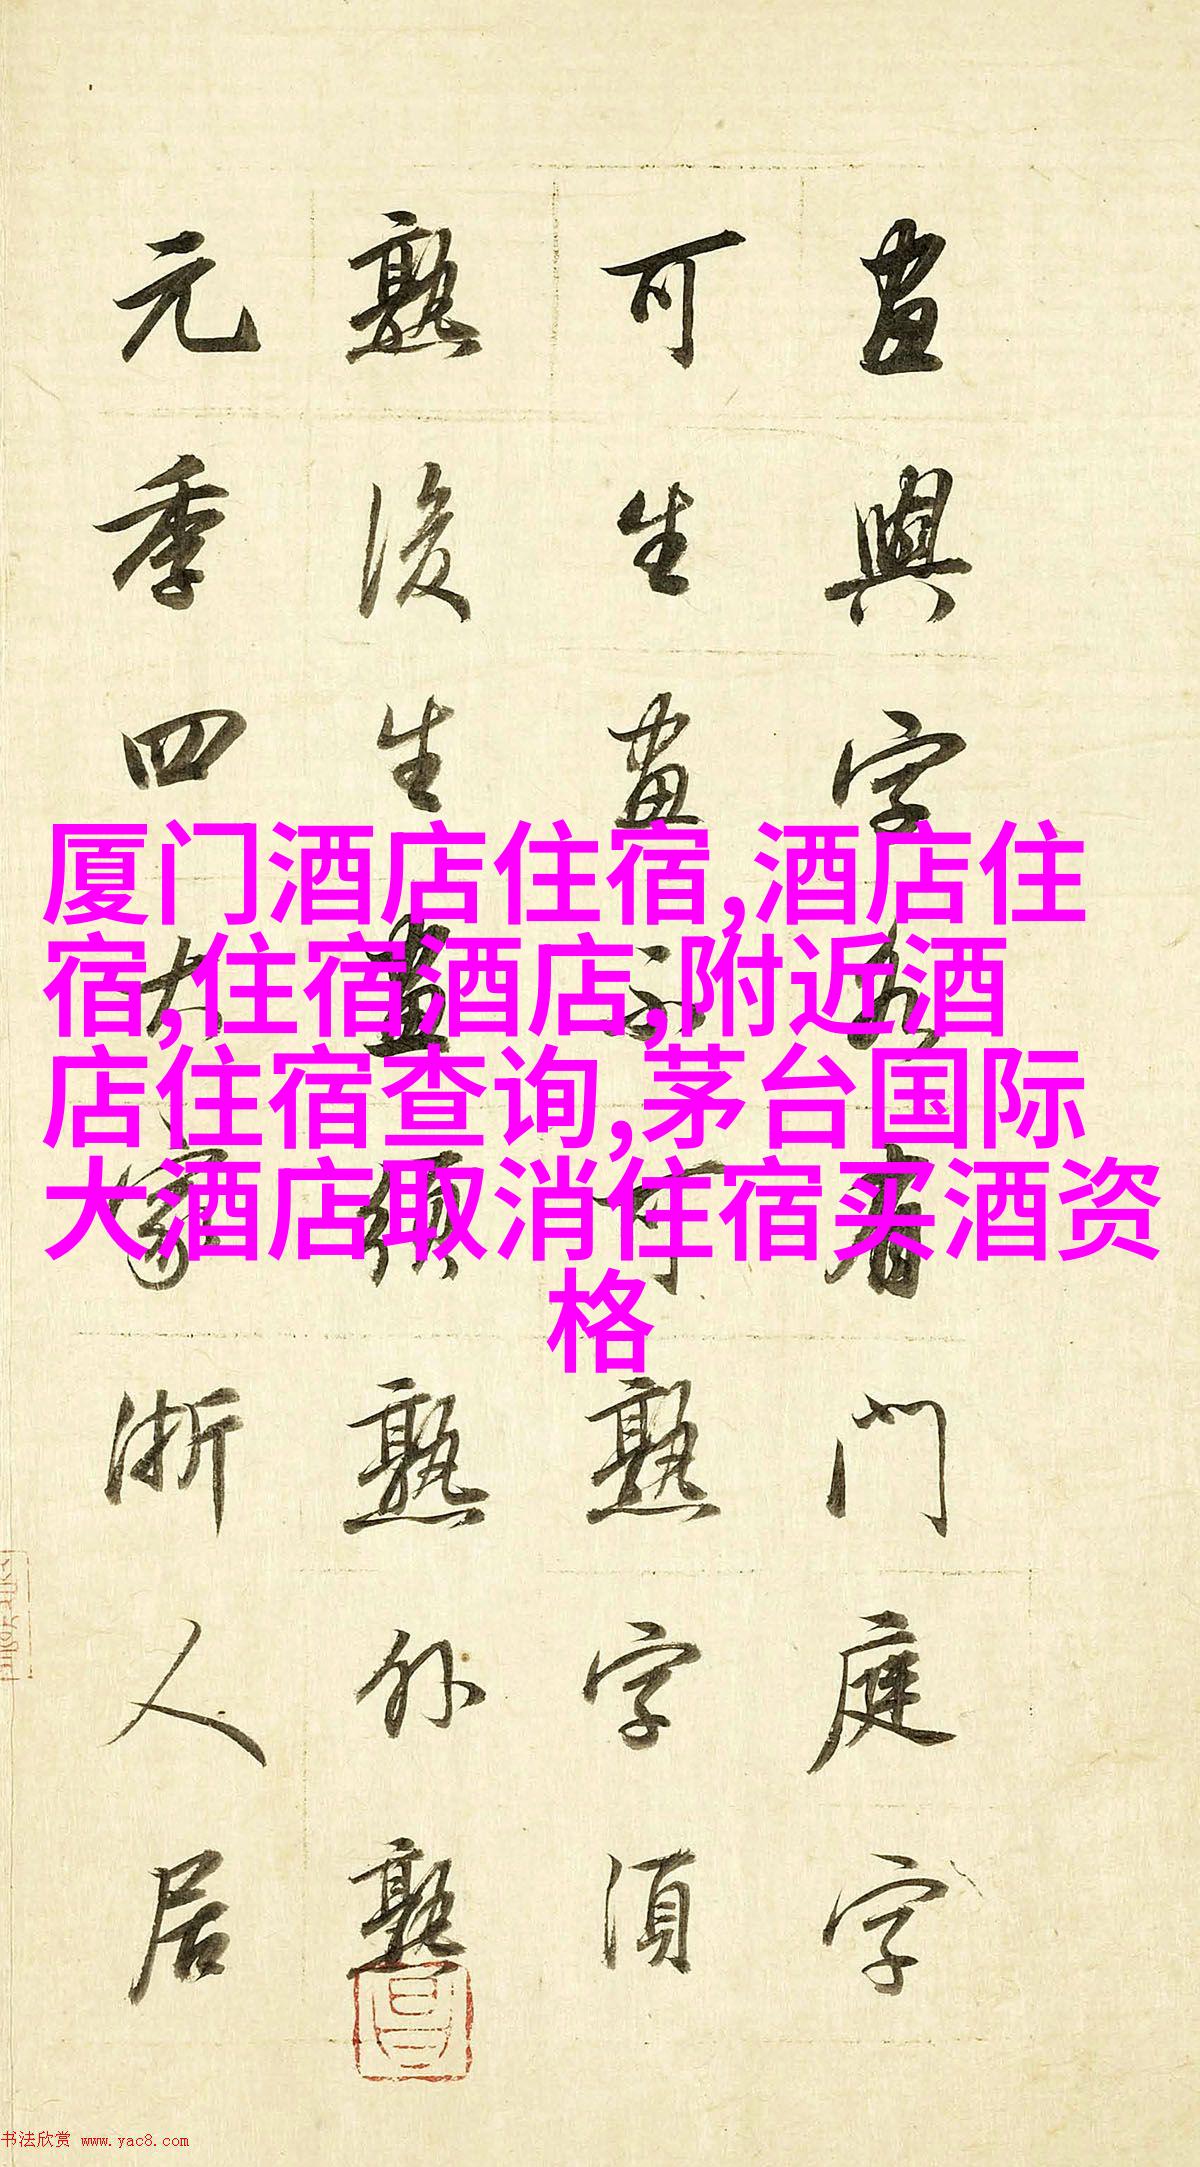 畫與字各有門庭字
可生畫不可熟字須
熟後生畫須熟外熟
元季四大家浙人居
厦门酒店住宿,酒店住
宿,住宿酒店,附近酒
店住宿查询,茅台国际
大酒店取消住宿买酒资
格
书法欣赏 www.yac8.com